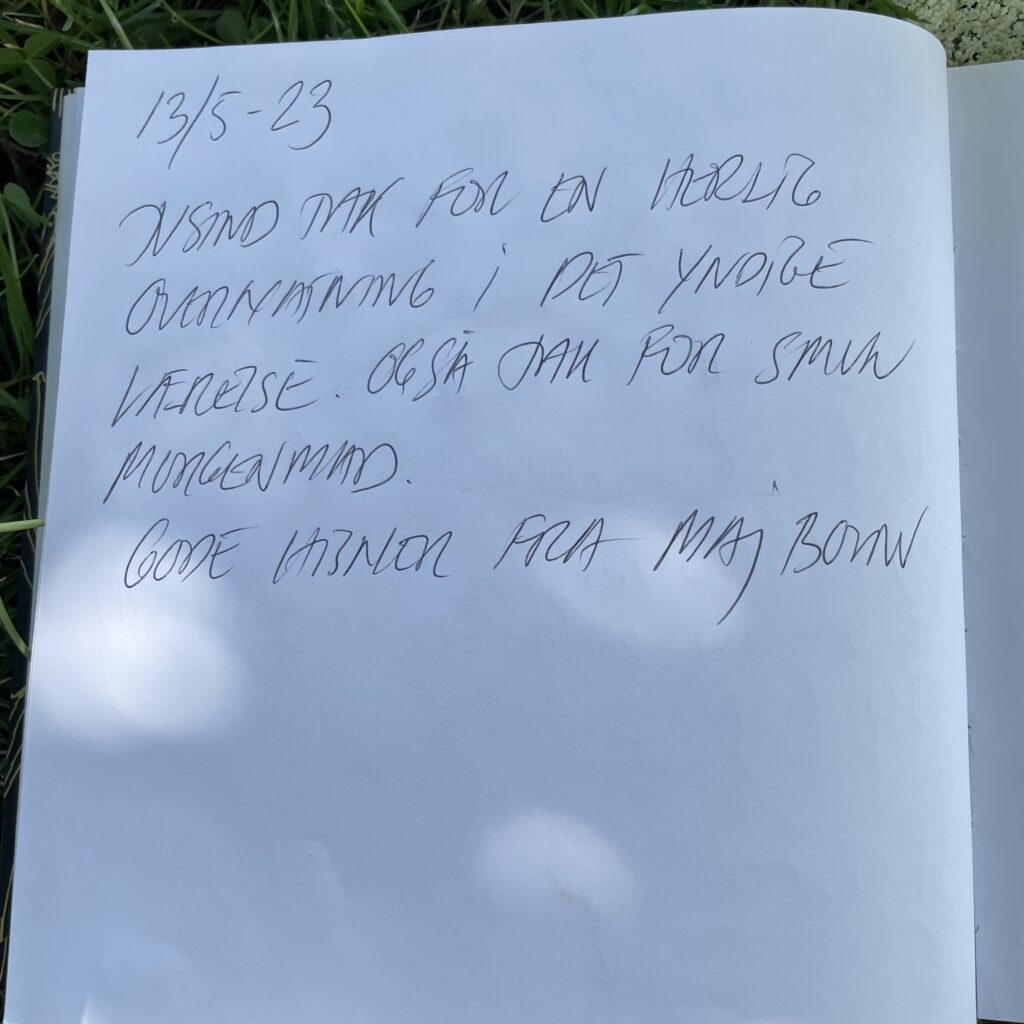 13/5-23
TUSIND TAK FOR EN HERLIG
OVERNATNING i DET YNDIGE
VÆRELSE. OGSÅ TAK FOR SMUK
MORGENMAD.
GODE HILSNER FRA MAJ